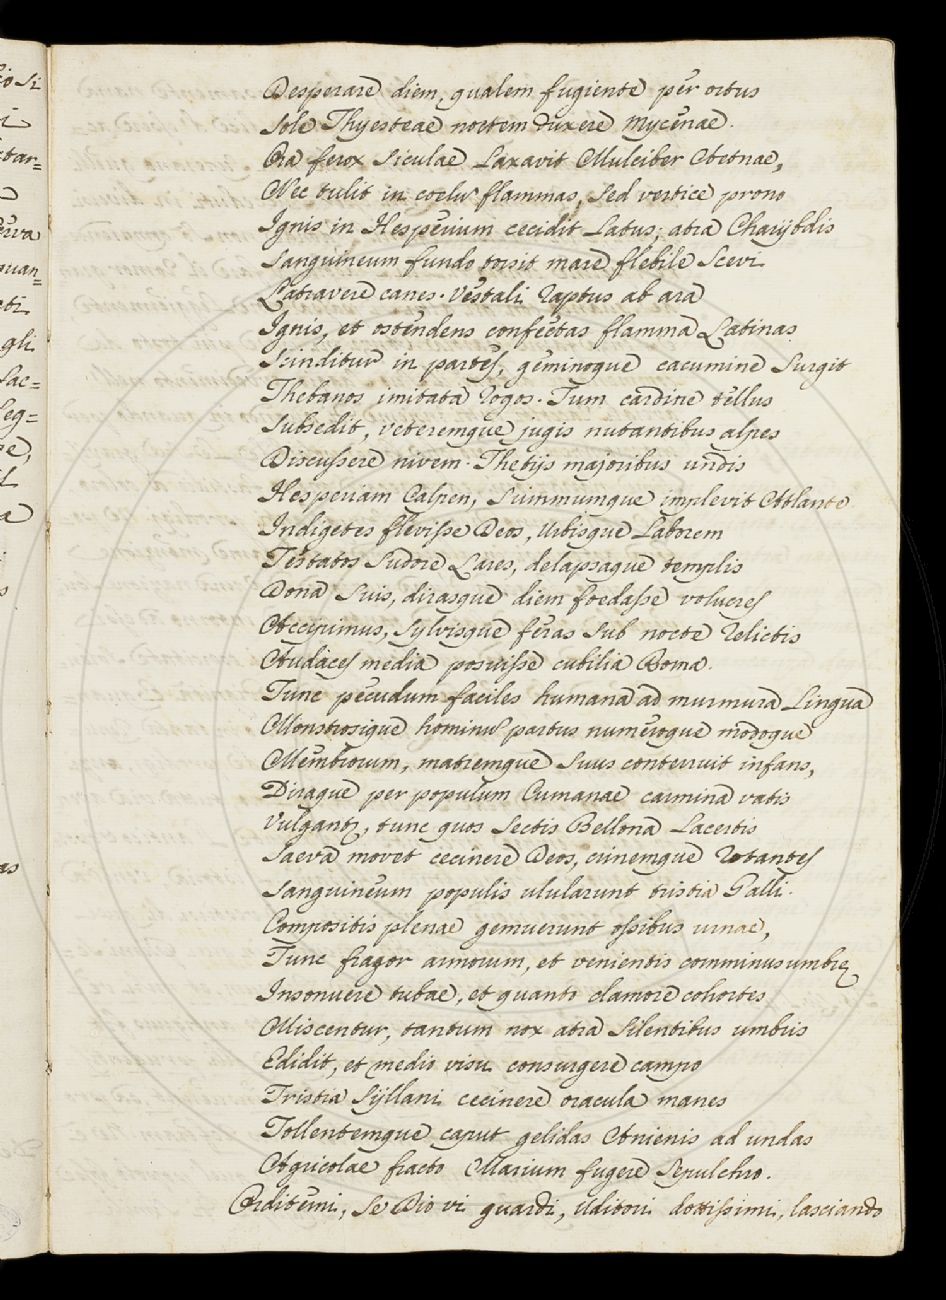 Desperare diem, qualem fugiente per ortus
Sole Thyesteae noctem duxere Mycenae.
Ora ferox Siculae Laxavit Mulciber Aetnae,
Nec tulit in coelũ flammas, Sed vertice prono
Ignis in Hesperium cecidit Latus; atra Charybdis
Sanguineum fundo torsit mare flebile Scevi
Latravere canes. Vestali raptus ab ara
Ignis, et ostendens confectas flamma Latinas
Scinditur in partes, geminoque cacumine Surgit
Thebanos imitata rogos. Tum cardine tellus
Subsedit, veteremque jugis nutantibus alpes
Discussere nivem. Thetijs majoribus undis
Hesperiam Calpen, Summumque implevit Atlante
Indigetes flevisse Deos, Urbisque Laborem
Testatos Sudore Lares, delapsaque templis
Dona Suis, dirasque diem foedasse volucres
Accipimus, Sylvisque feras Sub nocte relictis
Audaces media posuisse cubilia Roma.
Tunc pecudum faciles humana ad murmura Lingua
Monstrosique hominũ partus numeroque modoque
Membrorum, matremque Suus conterruit infans,
Diraque per populum Cumanae carmina vatis
Vulgant, tunc quos Sectis Bellona Lacertis
Saeva movet cecinere Deos, crinemque rotantes
Sanguineum populis ulularunt tristia Galli.
Compositis plenae gemuerunt ossibus urnae,
Tunc fragor armorum,
Insonuere tubae, et quanto clamore cohortes
Miscentur, tantum nox atra Silentibus umbris
Edidit, et medio visi consurgere campo
Tristia Syllani cecinere oracula manes
Tollentemque caput gelidas Anienis ad undas
Agricolae fracto Marium fugere Sepulchro.
Orditemi, Se Dio vi guardi, Uditori dottissimi, lasciando